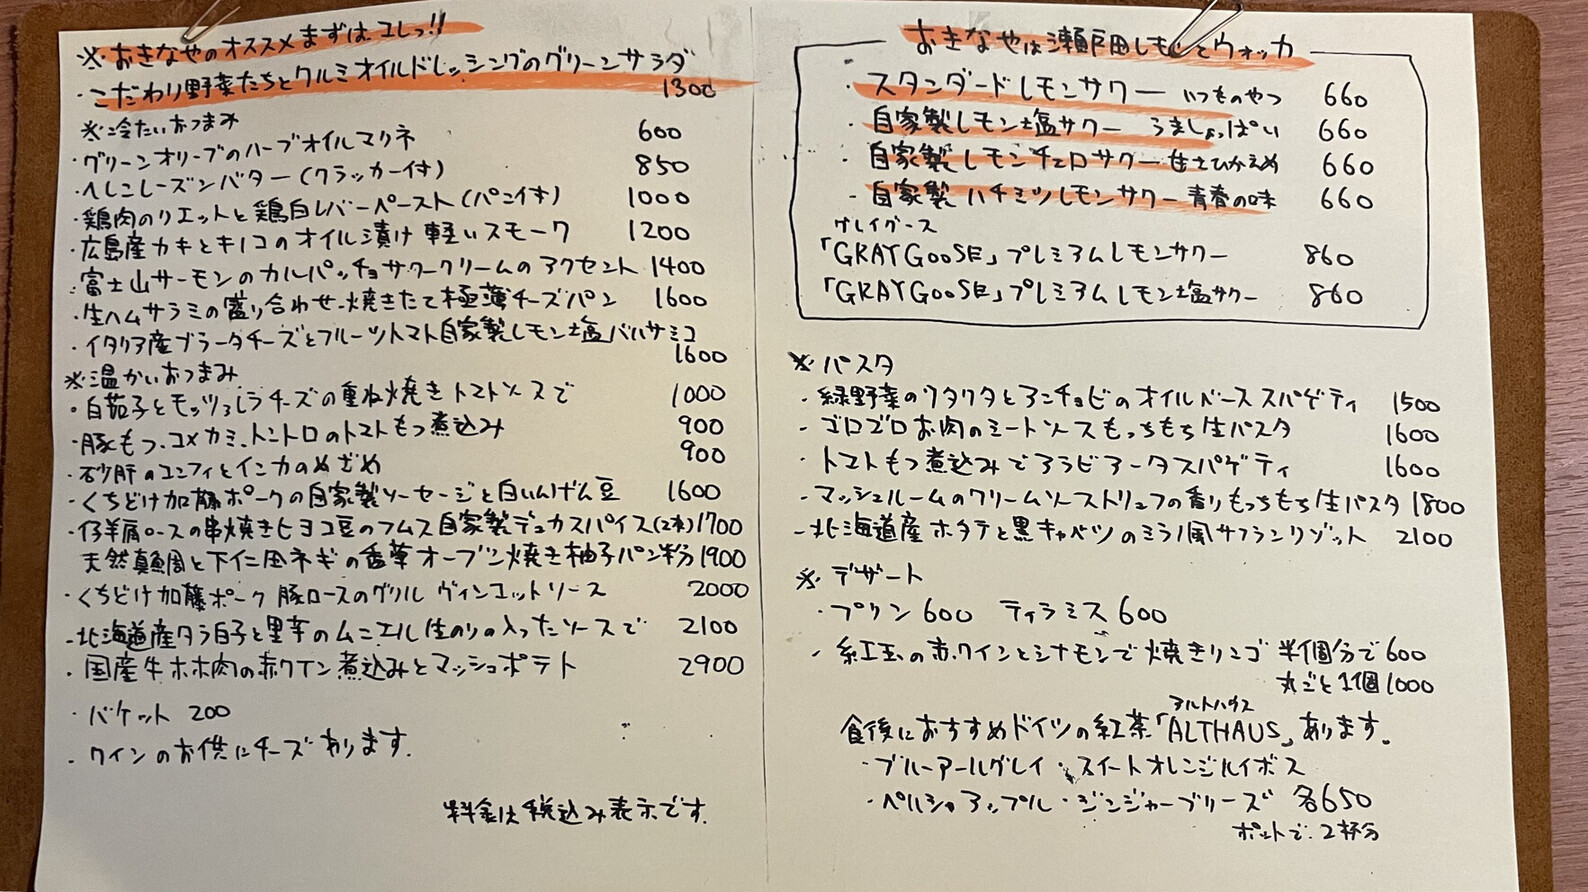 ※おきなやのオススメまずはコレっ!!
・こだわり野菜たちとクルミオイルドレッシングのグリーンサラダ
1300
※冷たいおつまみ
・グリーンオリーブのハーブオイルマリネ 600
・へしこレーズンバター(クラッカー付) 850
・鶏肉のリエットと鶏白レバーペースト(パン付き) 1000
・広島産カキとキノコのオイル漬け 軽いスモーク 1200
・富士山サーモンのカルパッチョサワークリームのアクセント 1400
・生ハムサラミの盛り合わせ 焼きたて極薄チーズパン 1600
・イタリア産ブラータチーズとフルーツトマト自家製レモン塩バルサミコ
1600
※温かいおつまみ
・白茄子とモッツァレラチーズの重ね焼きトマトソースで 1000
・豚もつ、コメカミ、トントロのトマトもつ煮込み 900
・砂肝のコンフィとインカのめざめ 900
・くちどけ加藤ポークの自家製ソーセージと白いんげん豆 1600
・仔羊肩ロースの串焼きヒヨコ豆のフムス自家製デュカスパイス(2本)1700
天然真鯛と下仁田ネギの香草オーブン焼き柚子パン粉 1900
・くちどけ加藤ポーク 豚ロースのグリル ヴィンコットソース 2000
・北海道産タラ白子と里芋のムニエル生のりの入ったソースで 2100
・国産牛ホホ肉の赤ワイン煮込みとマッシュポテト 2900
・バケット 200
・ワインのお供にチーズあります。
料金は税込み表示です。
おきなやは瀬戸田レモンとウォッカ
・スタンダードレモンサワー いつものやつ 660
・自家製レモン塩サワー うましょっぱい 660
・自家製レモンチェロサワー 甘さひかえめ 660
・自家製ハチミツレモンサワー 青春の味 660
グレイグース
「GRAYGOOSE」プレミアムレモンサワー 860
「GRAYGOOSE」プレミアムレモン塩サワー 860
※パスタ
・緑野菜のクタクタとアンチョビのオイルベーススパゲティ 1500
・ゴロゴロお肉のミートソースもっちもち生パスタ 1600
・トマトもつ煮込みでアラビアータスパゲティ 1600
・マッシュルームのクリームソーストリュフの香りもっちもち生パスタ 1800
・北海道産ホタテと黒キャベツのミラノ風サフランリゾット 2100
※デザート
・プリン 600 ティラミス 600
・紅玉の赤ワインとシナモンで焼きリンゴ 半個分で 600
丸ごと1個 1000
アルトハウス
食後におすすめドイツの紅茶「ALTHAUS」あります。
・ブルーアールグレイ・スイートオレンジルイボス
・ペルシャアップル・ジンジャーブリーズ 各650
ポットで2杯分